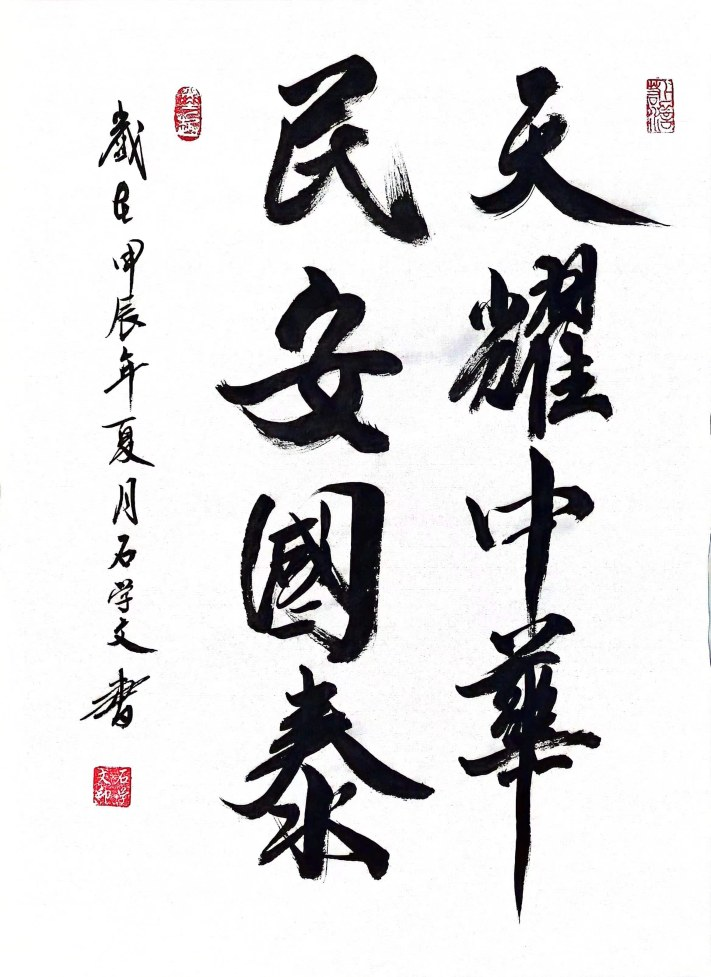 天耀中華
民安國泰
歲在甲辰年夏月石学文書
石学文印